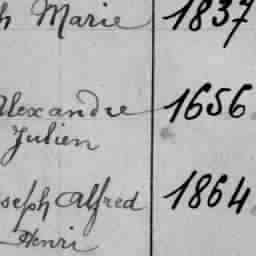 h Marie 1837
Alexandre 1656
Julien
oseph Alfred 1864
Henri